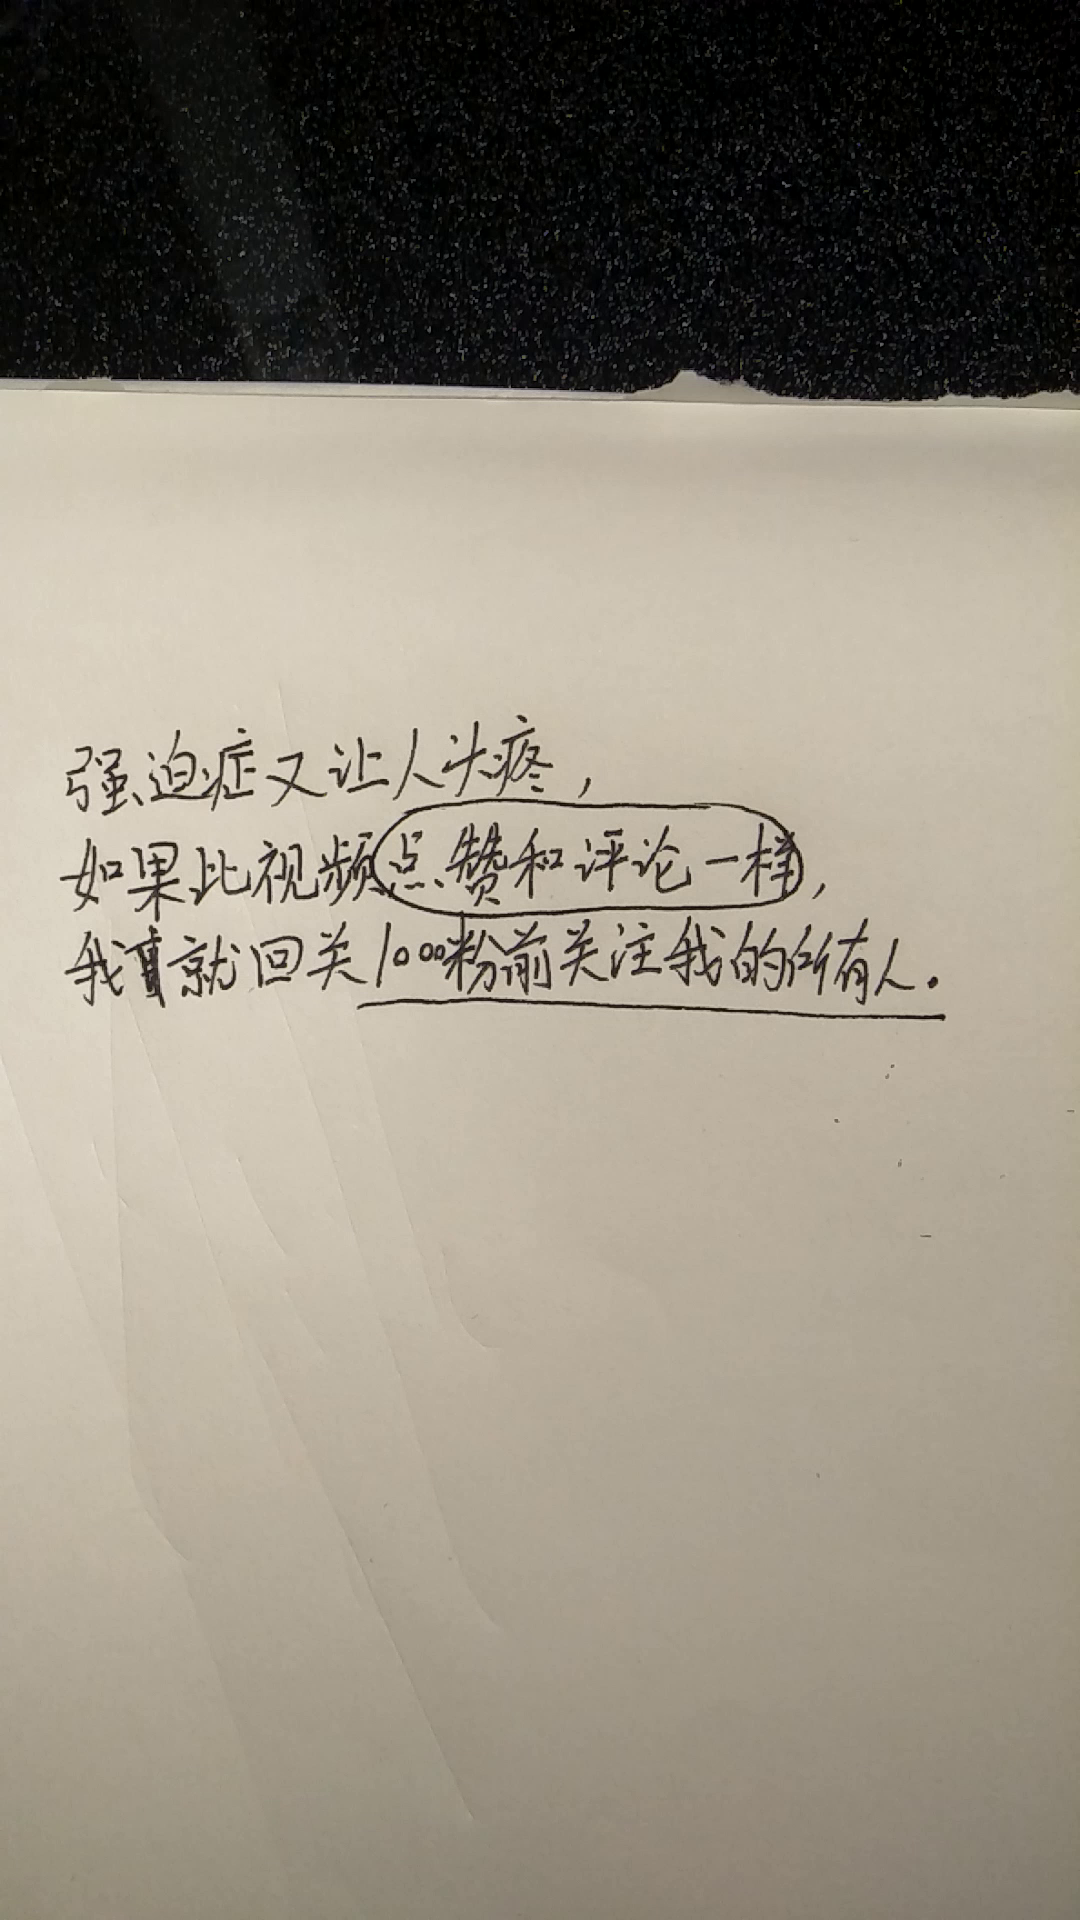 强迫症又让人头疼，
如果比视频点赞和评论一样，
我就回关1000粉前关注我的所有人。